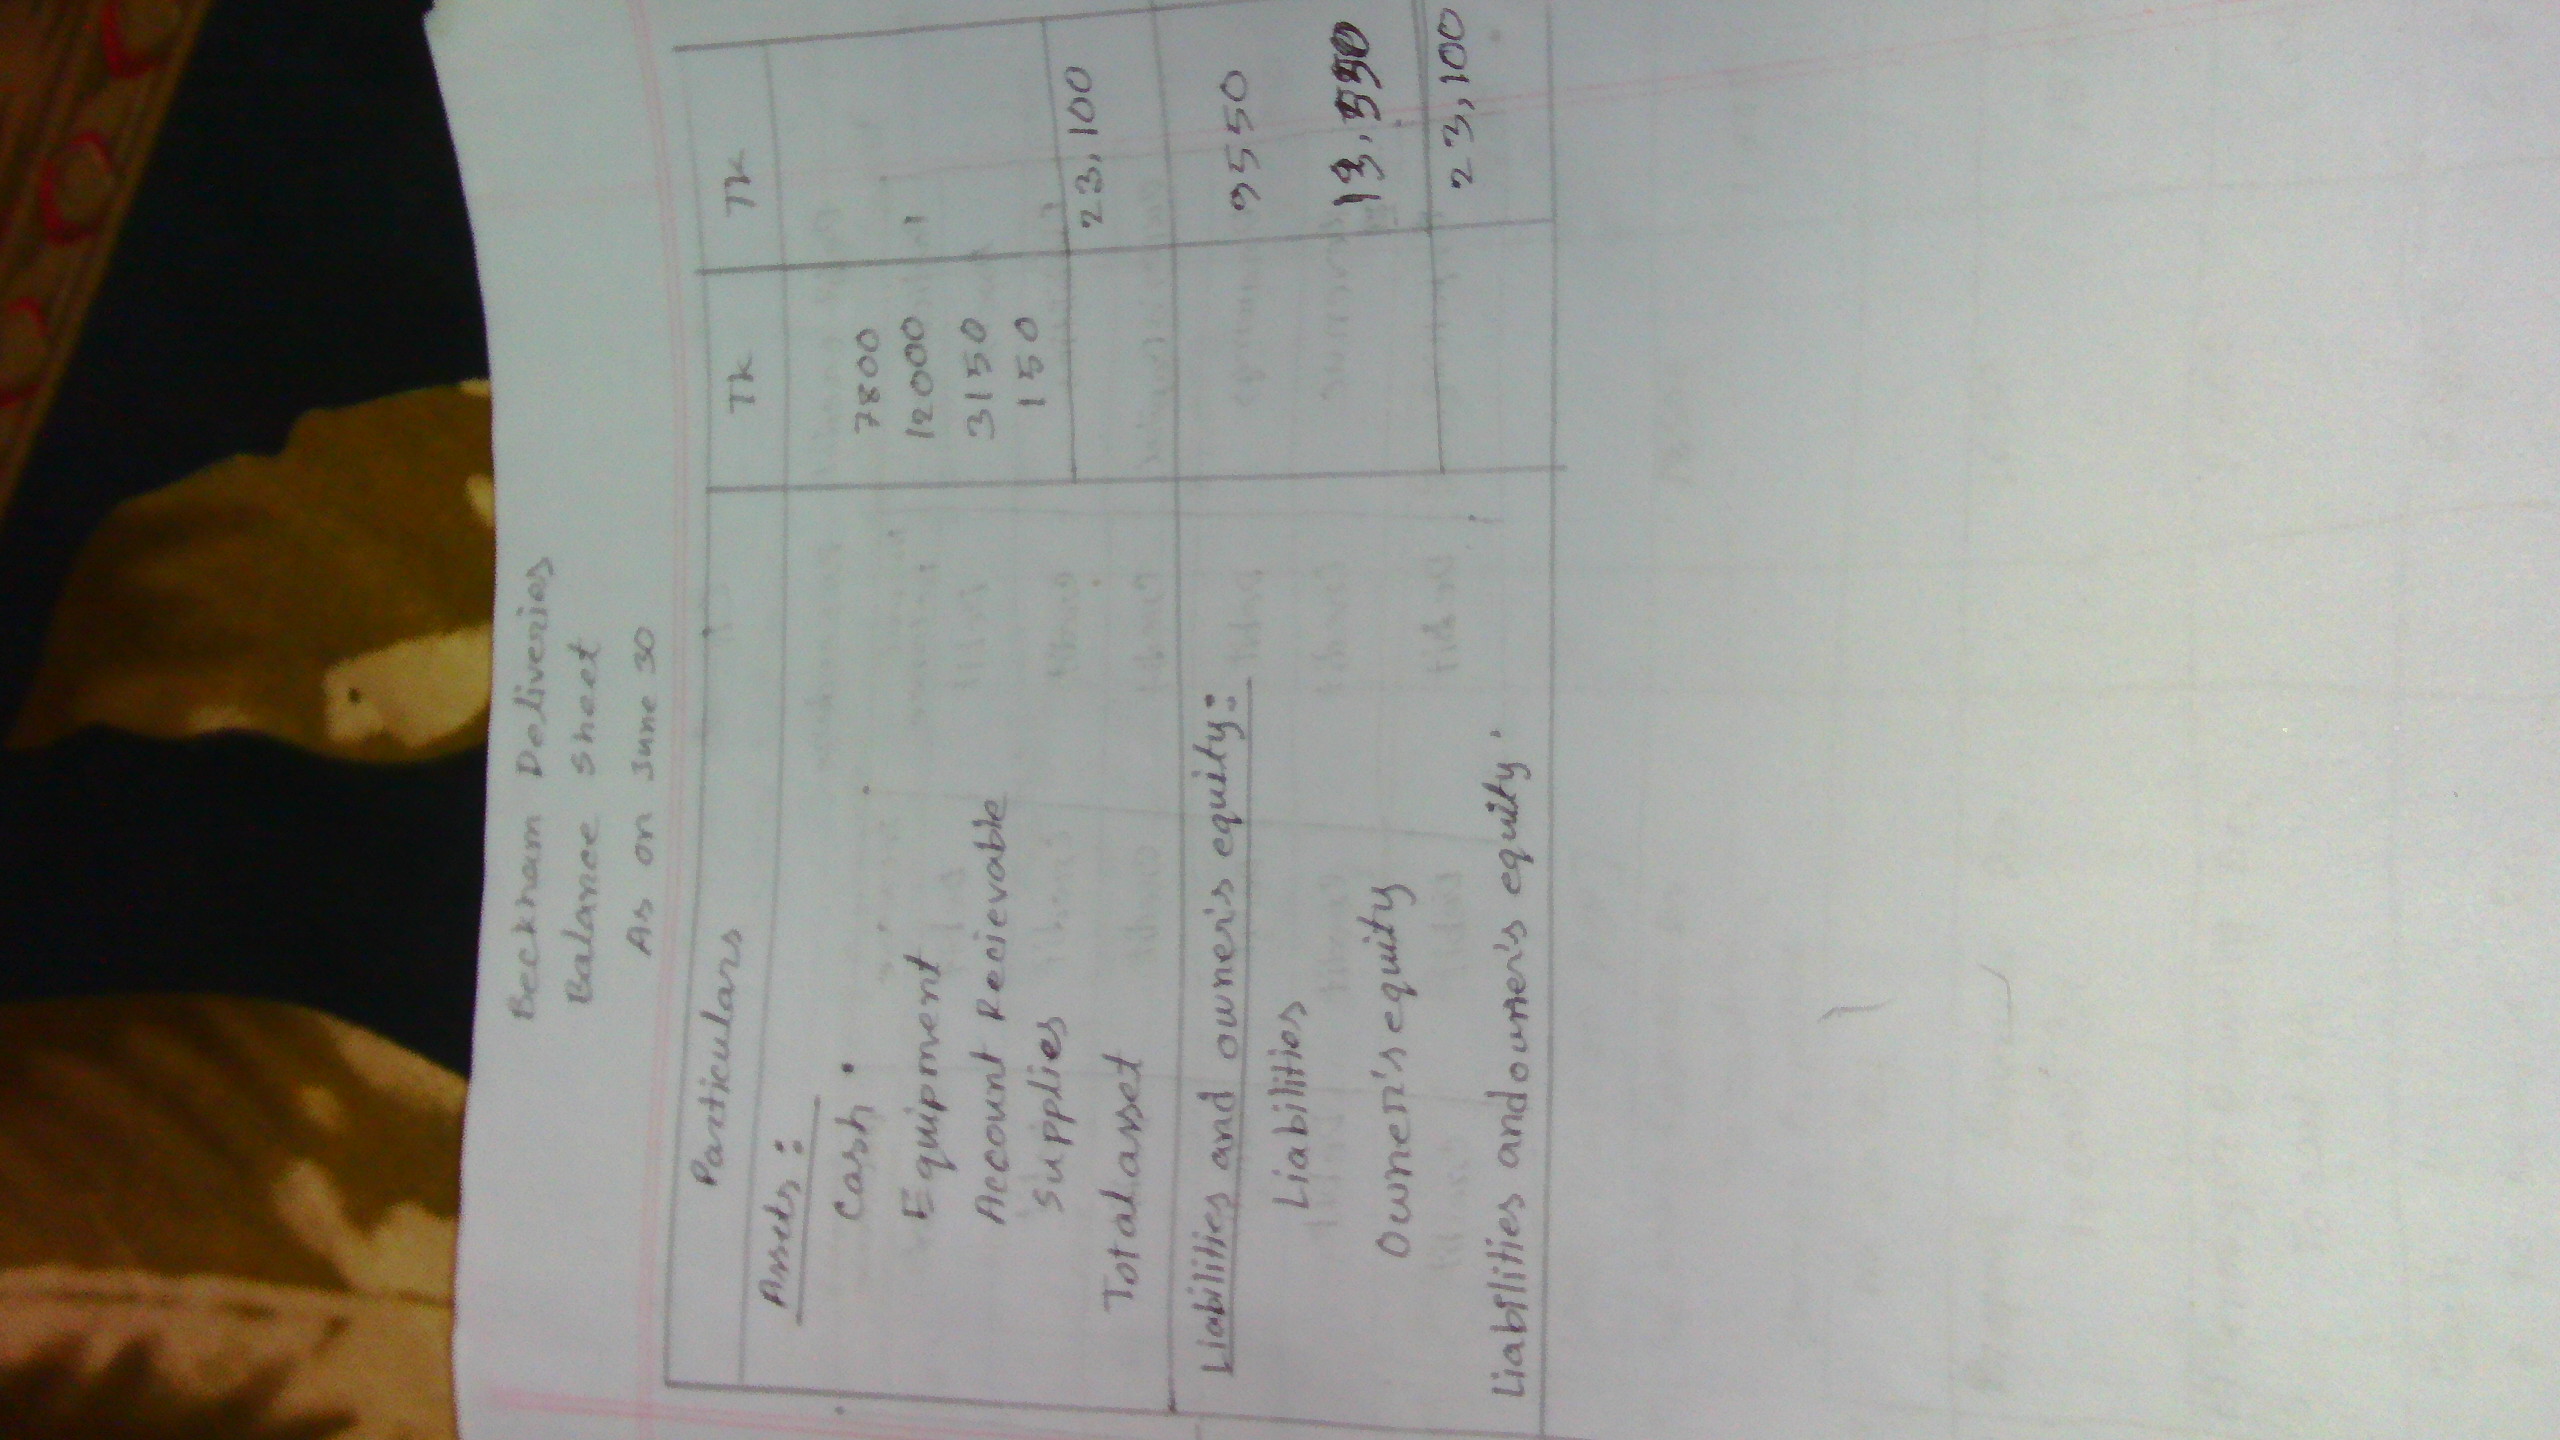 Beckham Deliveries
Balance sheet
As on June 30
Particulars TK TK
Assets:
Cash. 7800
Equipment 12000
Account Recievable 3150
Supplies 150
Total asset 23,100
Liabilities and owner's equity:
Liabilities 9550
Owner's equity 13,550
Liabilities and owner's equity. 23,100